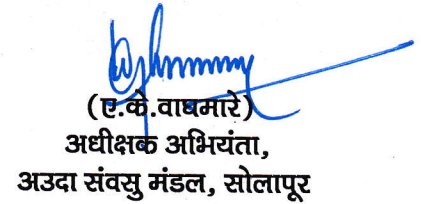 (ए.के.वाघमारे)
अधीक्षक अभियंता,
अउदा संवसु मंडल, सोलापूर